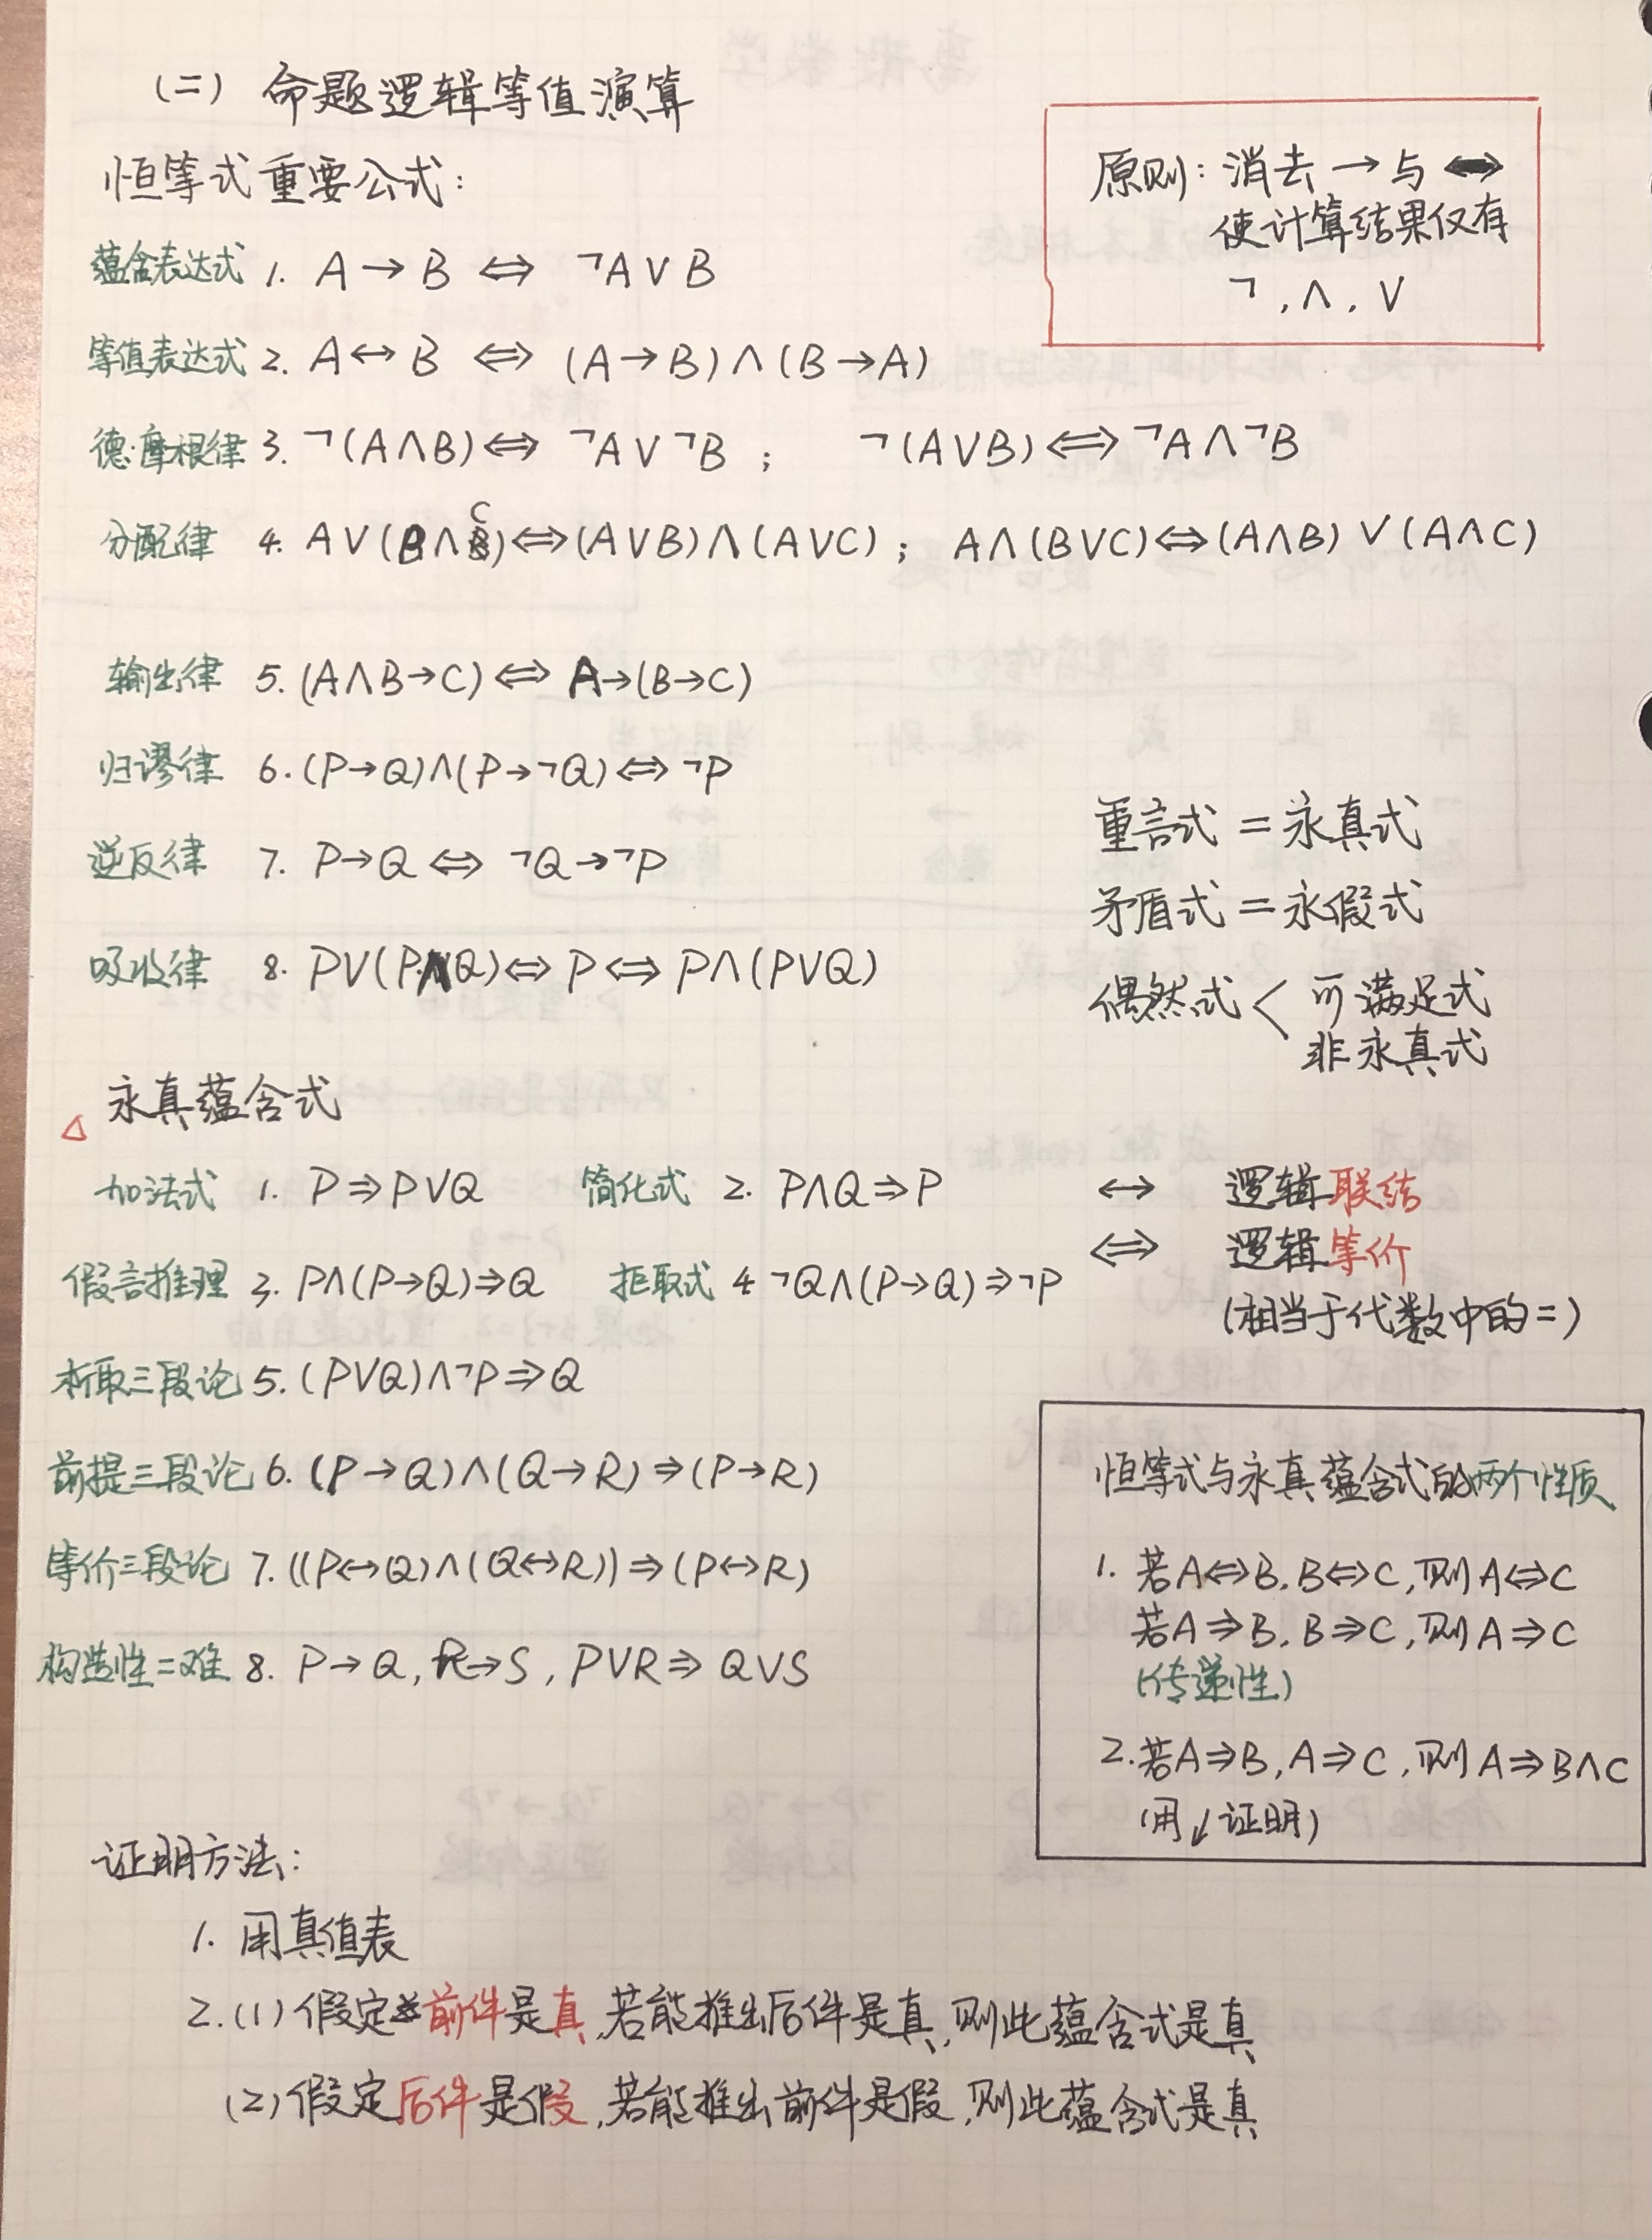 (二) 命题逻辑等值演算
恒等式重要公式:
原则: 消去 → 与 ↔
使计算结果仅有
¬, ∧, ∨
蕴含表达式 1. A → B ⇔ ¬A ∨ B
等值表达式 2. A ↔ B ⇔ (A → B) ∧ (B → A)
德·摩根律 3. ¬(A ∧ B) ⇔ ¬A ∨ ¬B ; ¬(A ∨ B) ⇔ ¬A ∧ ¬B
分配律 4. A ∨ (B ∧ C) ⇔ (A ∨ B) ∧ (A ∨ C) ; A ∧ (B ∨ C) ⇔ (A ∧ B) ∨ (A ∧ C)
输出律 5. (A ∧ B → C) ⇔ A → (B → C)
归谬律 6. (P → Q) ∧ (P → ¬Q) ⇔ ¬P
逆反律 7. P → Q ⇔ ¬Q → ¬P
吸收律 8. P ∨ (P ∧ Q) ⇔ P ⇔ P ∧ (P ∨ Q)
重言式 = 永真式
矛盾式 = 永假式
偶然式 < 可满足式
非永真式
△ 永真蕴含式
加法式 1. P ⇒ P ∨ Q 简化式 2. P ∧ Q ⇒ P
假言推理 3. P ∧ (P → Q) ⇒ Q 拒取式 4 ¬Q ∧ (P → Q) ⇒ ¬P
析取三段论 5. (P ∨ Q) ∧ ¬P ⇒ Q
前提三段论 6. (P → Q) ∧ (Q → R) ⇒ (P → R)
等价三段论 7. ((P ↔ Q) ∧ (Q ↔ R)) ⇒ (P ↔ R)
构造性二难 8. P → Q, R → S, P ∨ R ⇒ Q ∨ S
↔ 逻辑联结
⇔ 逻辑等价
(相当于代数中的=)
恒等式与永真蕴含式的两个性质
1. 若A⇔B, B⇔C, 则A⇔C
若A⇒B, B⇒C, 则A⇒C
(传递性)
2. 若A⇒B, A⇒C, 则A⇒B∧C
(用↙证明)
证明方法:
1. 用真值表
2. (1) 假定前件是真, 若能推出后件是真, 则此蕴含式是真
(2) 假定后件是假, 若能推出前件是假, 则此蕴含式是真